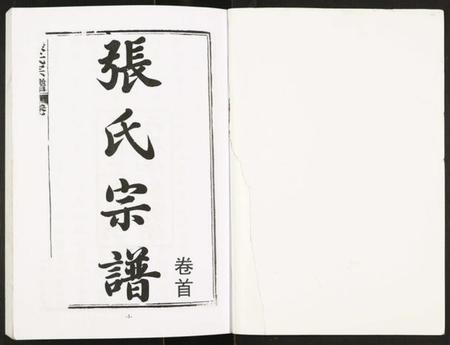 張氏宗譜
卷首
-1-